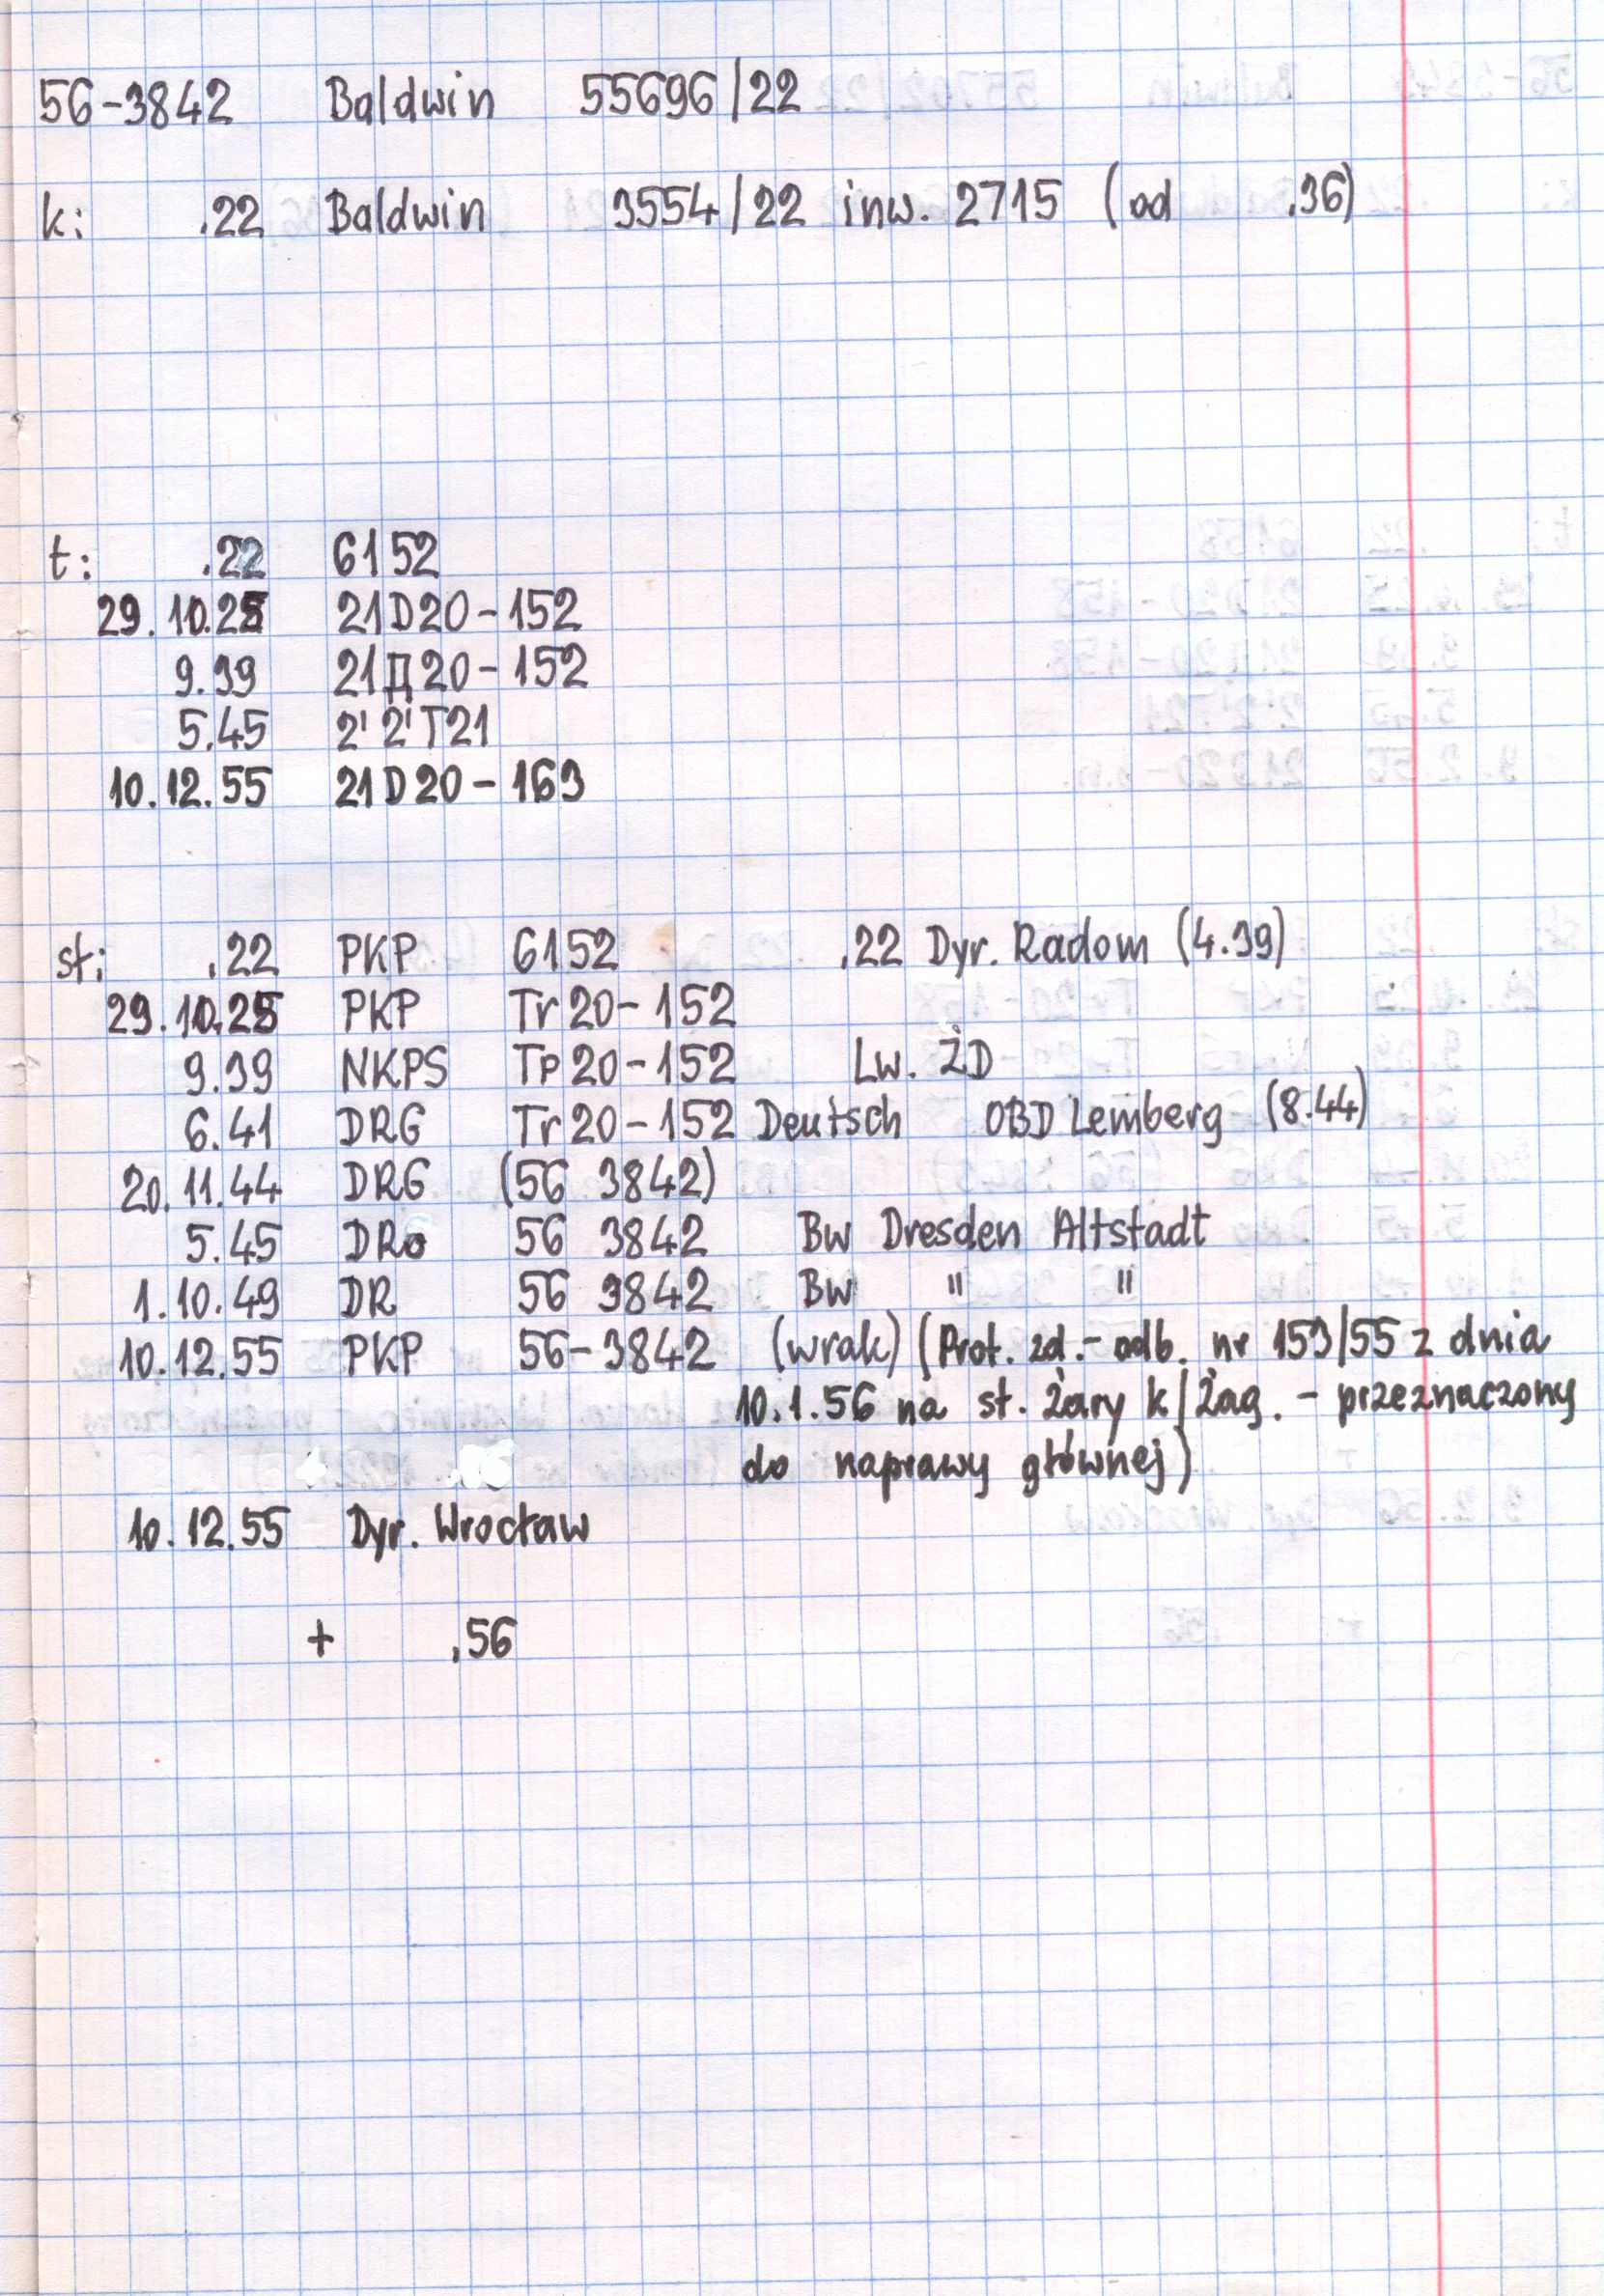 56-3842 Baldwin 55696/22
k: .22 Baldwin 3554/22 inw. 2715 (od .36)
t: .22 6152
29.10.25 21D20-152
9.39 21Д20-152
5.45 2'2'T21
10.12.55 21D20-163
st: .22 PKP 6152 .22 Dyr. Radom (4.39)
29.10.25 PKP Tr20-152
9.39 NKPS Tp20-152 Lw. ŻD
6.41 DRG Tr20-152 Deutsch OBD Lemberg (8.44)
20.11.44 DRG (56 3842)
5.45 DRo 56 3842 Bw Dresden Altstadt
1.10.49 DR 56 3842 Bw " "
10.12.55 PKP 56-3842 (wrak) (Prot. zd.-odb. nr 159/55 z dnia
10.1.56 na st. Żary k/Żag. - przeznaczony
do naprawy głównej)
10.12.55 Dyr. Wrocław
+ .56